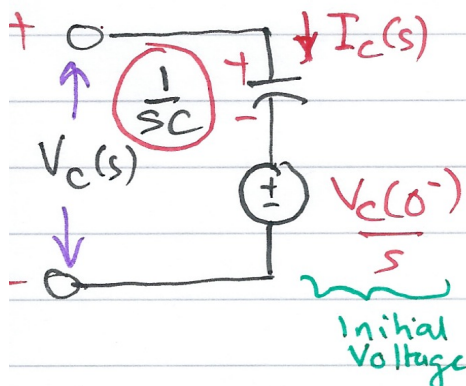 +
I_C(s)
+
1/SC
-
V_C(s)
+
-
V_C(0^-)/S
-
Initial
Voltage